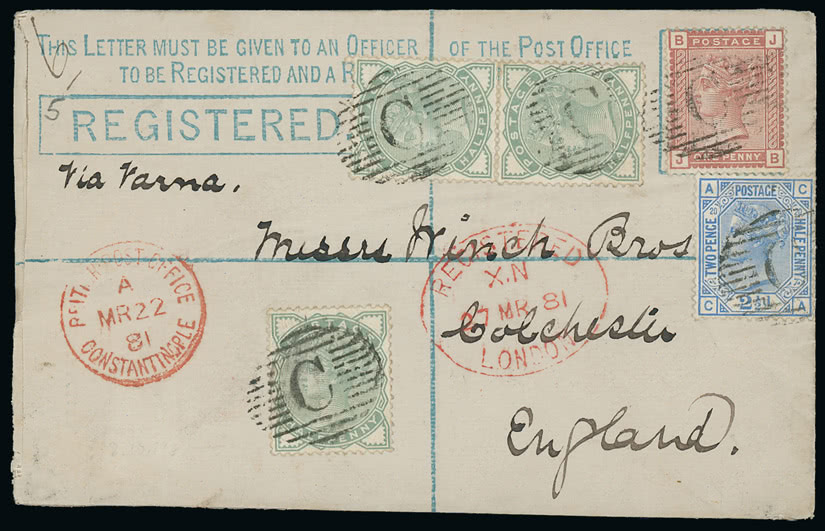 THIS LETTER MUST BE GIVEN TO AN OFFICER OF THE POST OFFICE
TO BE REGISTERED AND A R
REGISTERED
5
POSTAGE HALFPENNY
HALFPENNY
B POSTAGE J
J ONE PENNY B
Via Varna.
A POSTAGE C
TWO PENCE HALF PENNY
20
C 2½ A
C
C
C
C
C
Messrs Winch Bros
Colchester
England.
BRITISH POST OFFICE
A
MR 22
81
CONSTANTINOPLE
REGISTERED
X.N
27 MR 81
LONDON
C